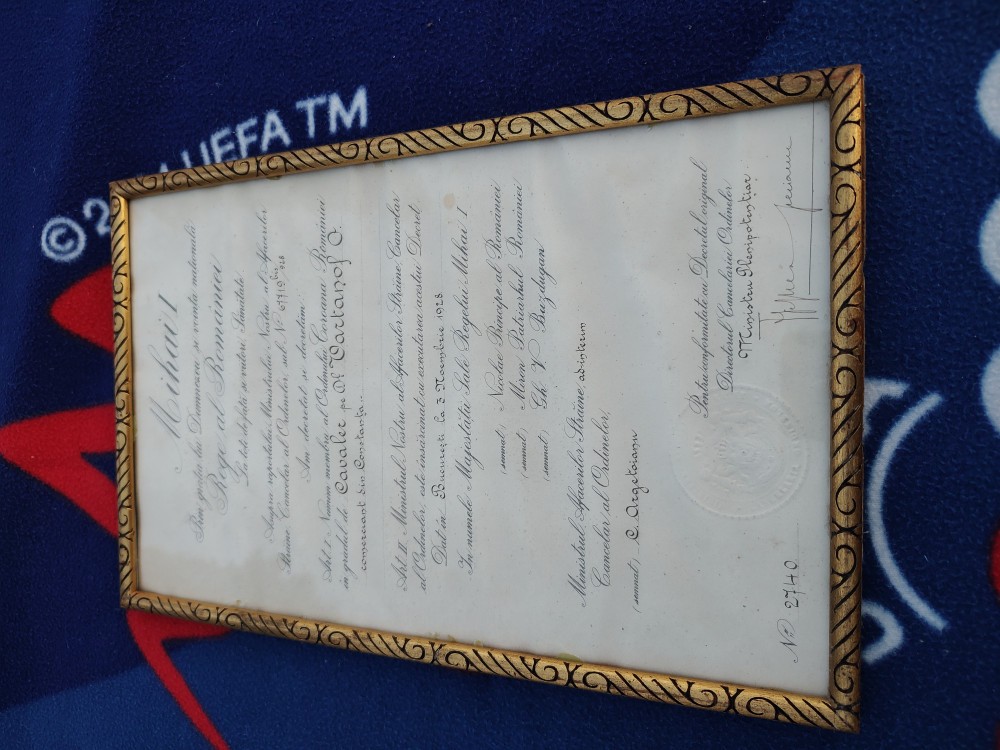 Mihai I
Prin grația lui Dumnezeu și voința națională
Rege al României
La toți de față și viitori, Sănătate
Asupra raportului Ministrului Nostru al Afacerilor
Străine Cancelar al Ordinelor sub No 67719 bis 928
Am decretat și decretăm:
Art. I. Numim membru al Ordinului Coroana României
în gradul de Cavaler pe Dl Vartanof O.
comerciant din Constanța.
Art. II. Ministrul Nostru al Afacerilor Străine, Cancelar
al Ordinelor, este însărcinat cu executarea acestui Decret
Dat în București la 3 Noembrie 1928
În numele Majestății Sale Regelui Mihai I
(semnat) Nicolae Principe al României
(semnat) Miron Patriarhul României
(semnat) Gh. V. Buzdugan
Ministrul Afacerilor Străine, ad-interim
Cancelar al Ordinelor,
(semnat) C. Argetoianu
Pentru conformitate cu Decretul original
Directorul Cancelariei Ordinelor
Ministru Plenipotențiar
No 2740
© 2
UEFA TM